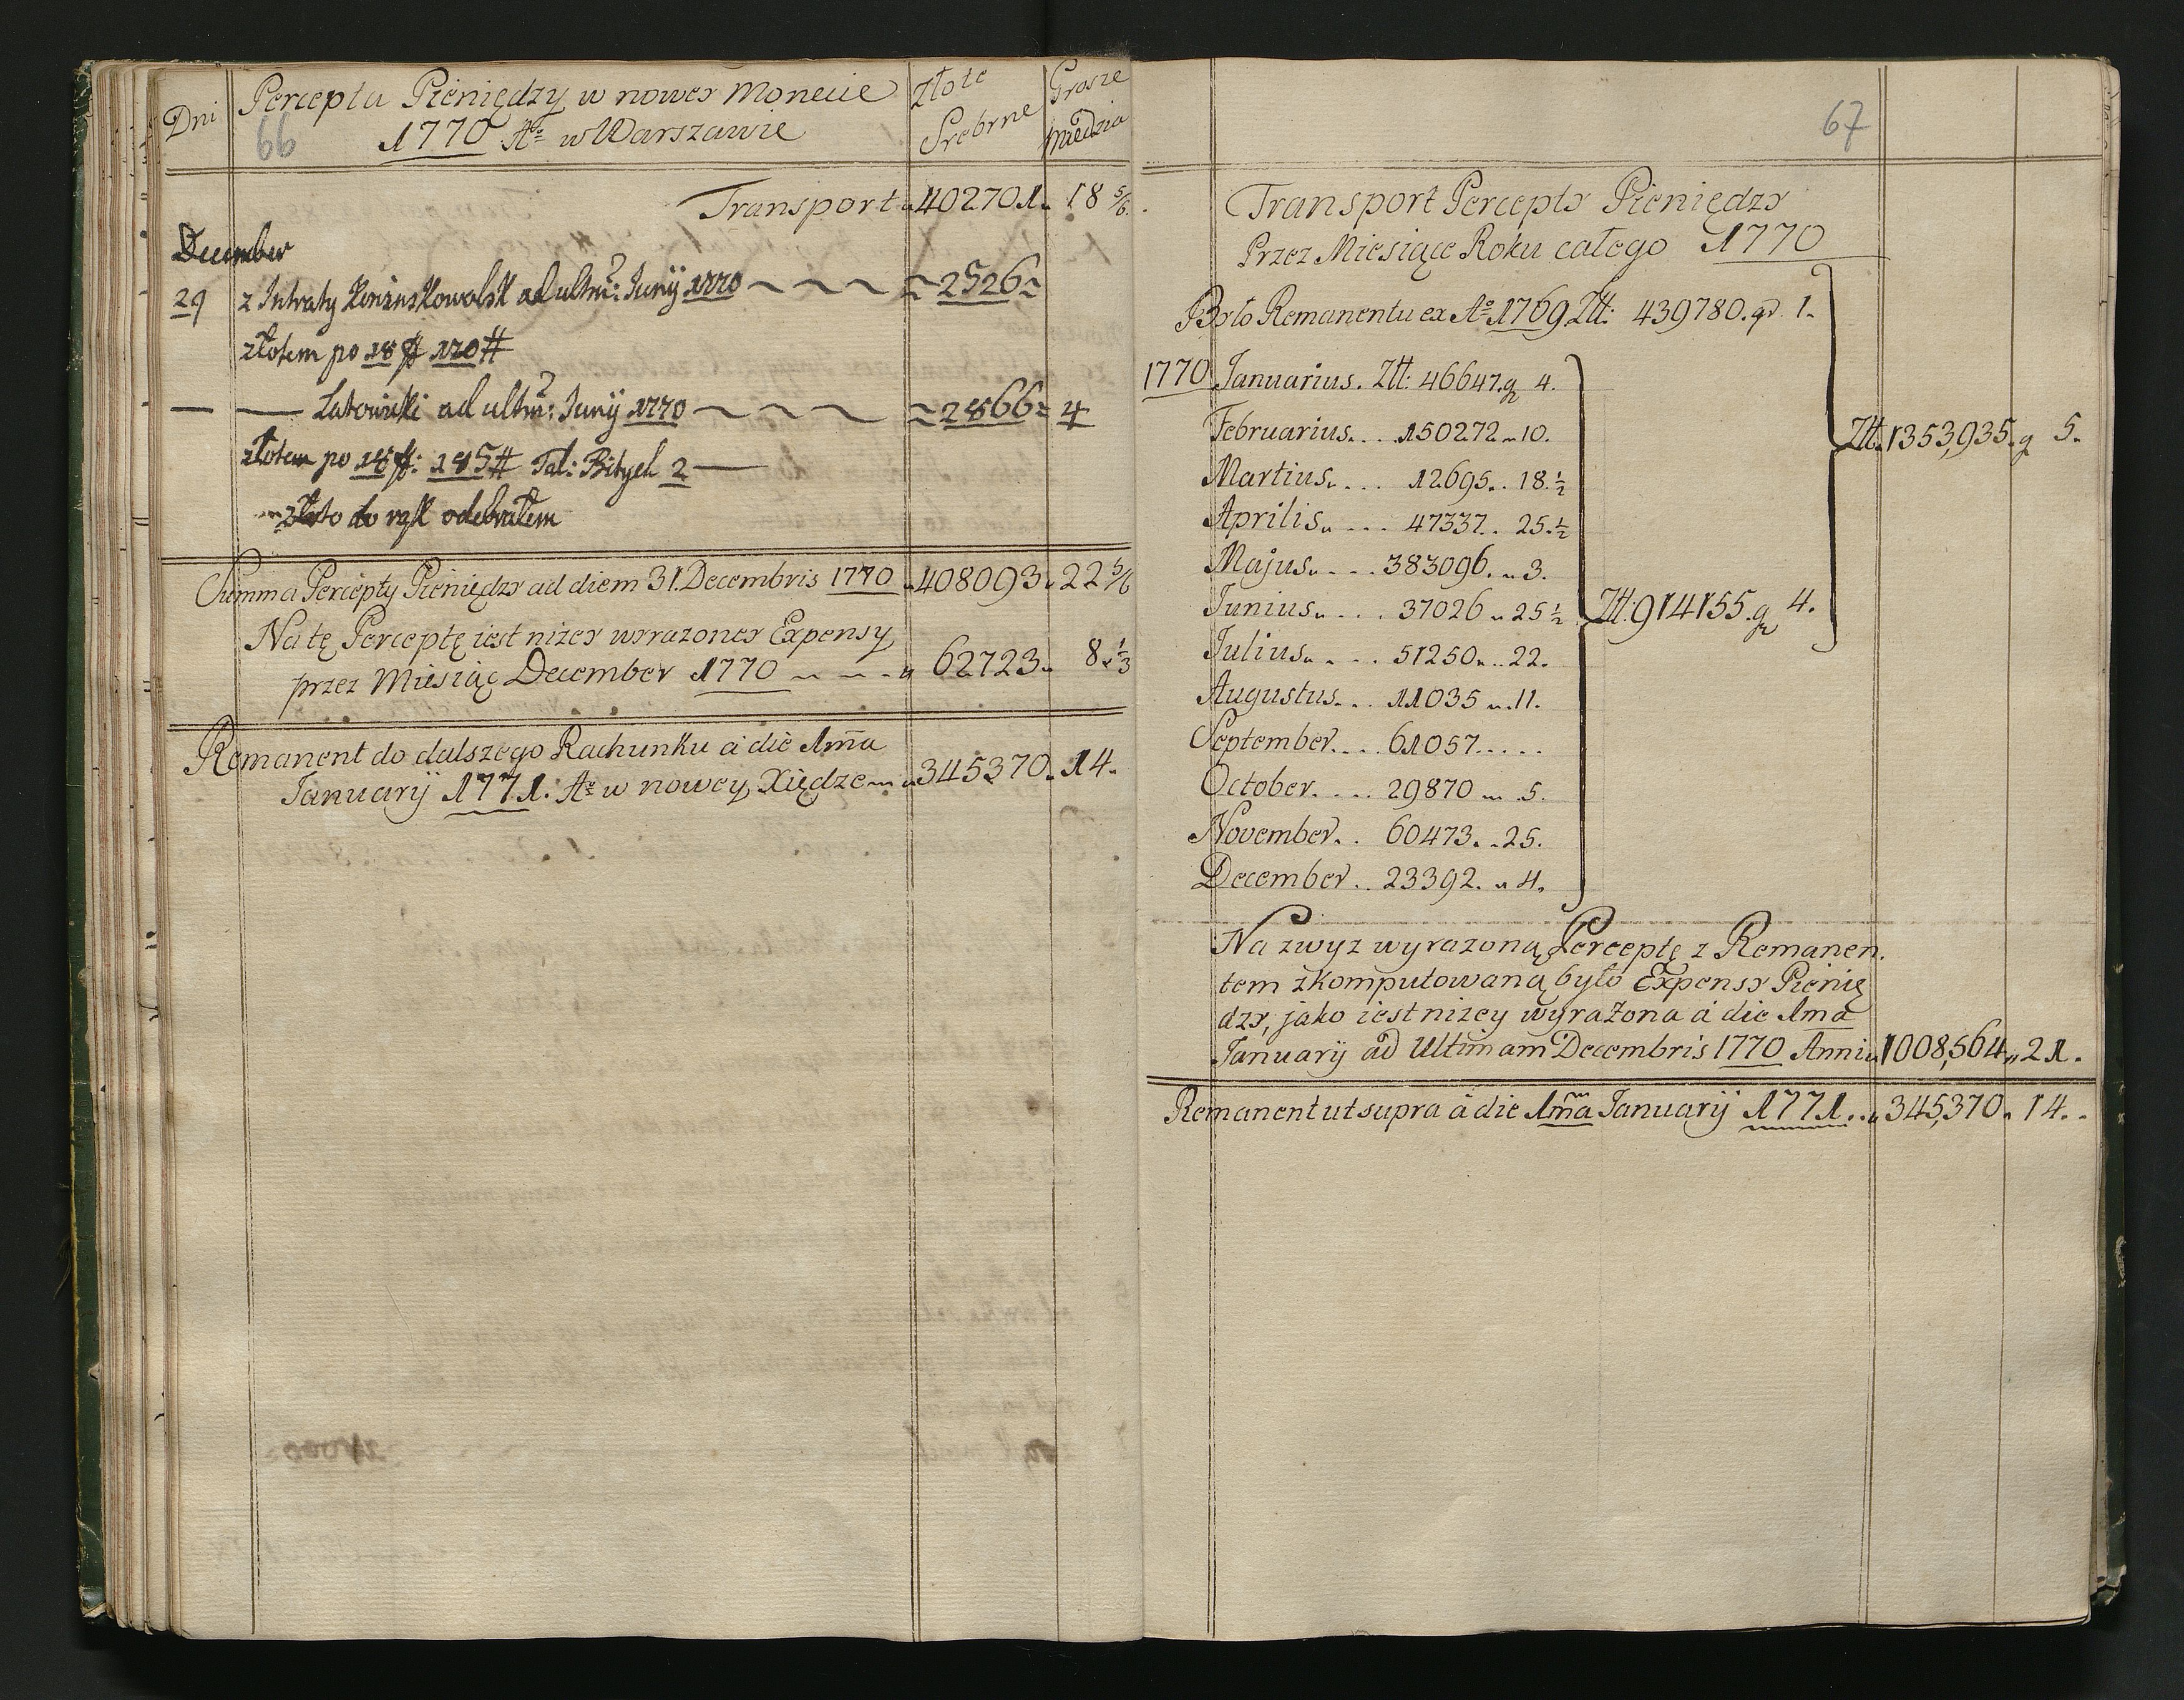 Dni
Percepta Pieniędzy w nowey Monecie
1770 Aõ w Warszawie
66
Złote Srebrne
Grosze Miedzią
Transport 402701. 18 5/6.
December
29 z Intraty ad ultm: Junij 1770 2526
złotem po 18 # 170#
ad ultm: Junij 1770 2866 = 4
złotem po 18 #: 185# Tal: Bitych 2
złoto do rąk odebrałem
Summa Percepty Pieniędzy ad diem 31. Decembris 1770 408093. 22 5/6
Na tę Perceptę iest niżey wyrazoney Expensy
przez Miesiąc December 1770 62723. 8 1/3
Remanent do dalszego Rachunku à die 1ma
Januarij 1771. Aõ w nowey Xiędze 345370. 14.
67
Transport Percepty Pieniędzy
Przez Miesiące Roku całego 1770
Było Remanentu ex Aõ 1769 Złt: 439780. gr. 1.
1770 Januarius. Złt: 46647. gr 4.
Februarius. . . . 150272 . 10.
Złt. 1353,935. g 5.
Martius. . . . 12695. . 18. 1/2
Aprilis. . . . 47337. . 25. 1/2
Majus. . . . 383096. . 3.
Junius. . . . 37026 . 25 1/2
Złt: 914155. gr 4.
Julius. . . . 51250. . . 22.
Augustus. . . 11035 . . 11.
September. . . . 61057. . . . .
October. . . . 29870 . 5.
November. . 60473. . 25.
December. . 23392. . 4.
Na zwyz wyrazoną Perceptę z Remanen.
tem zkomputowaną było Expensy Pienię
dzy, jako iest nizey wyrażona à die 1ma
Januarij ad Ultimam Decembris 1770 Anni 1008,564 . 21.
Remanent ut supra à die 1ma Januarij 1771. . 345,370. 14.